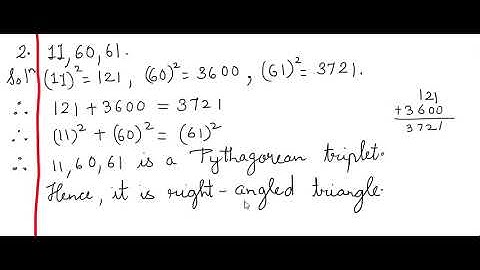 2. 11, 60, 61.
Solⁿ (11)² = 121, (60)² = 3600, (61)² = 3721.
∴ 121 + 3600 = 3721
121
+3600
3721
∴ (11)² + (60)² = (61)²
∴ 11, 60, 61 is a Pythagorean triplet.
Hence, it is right-angled triangle.